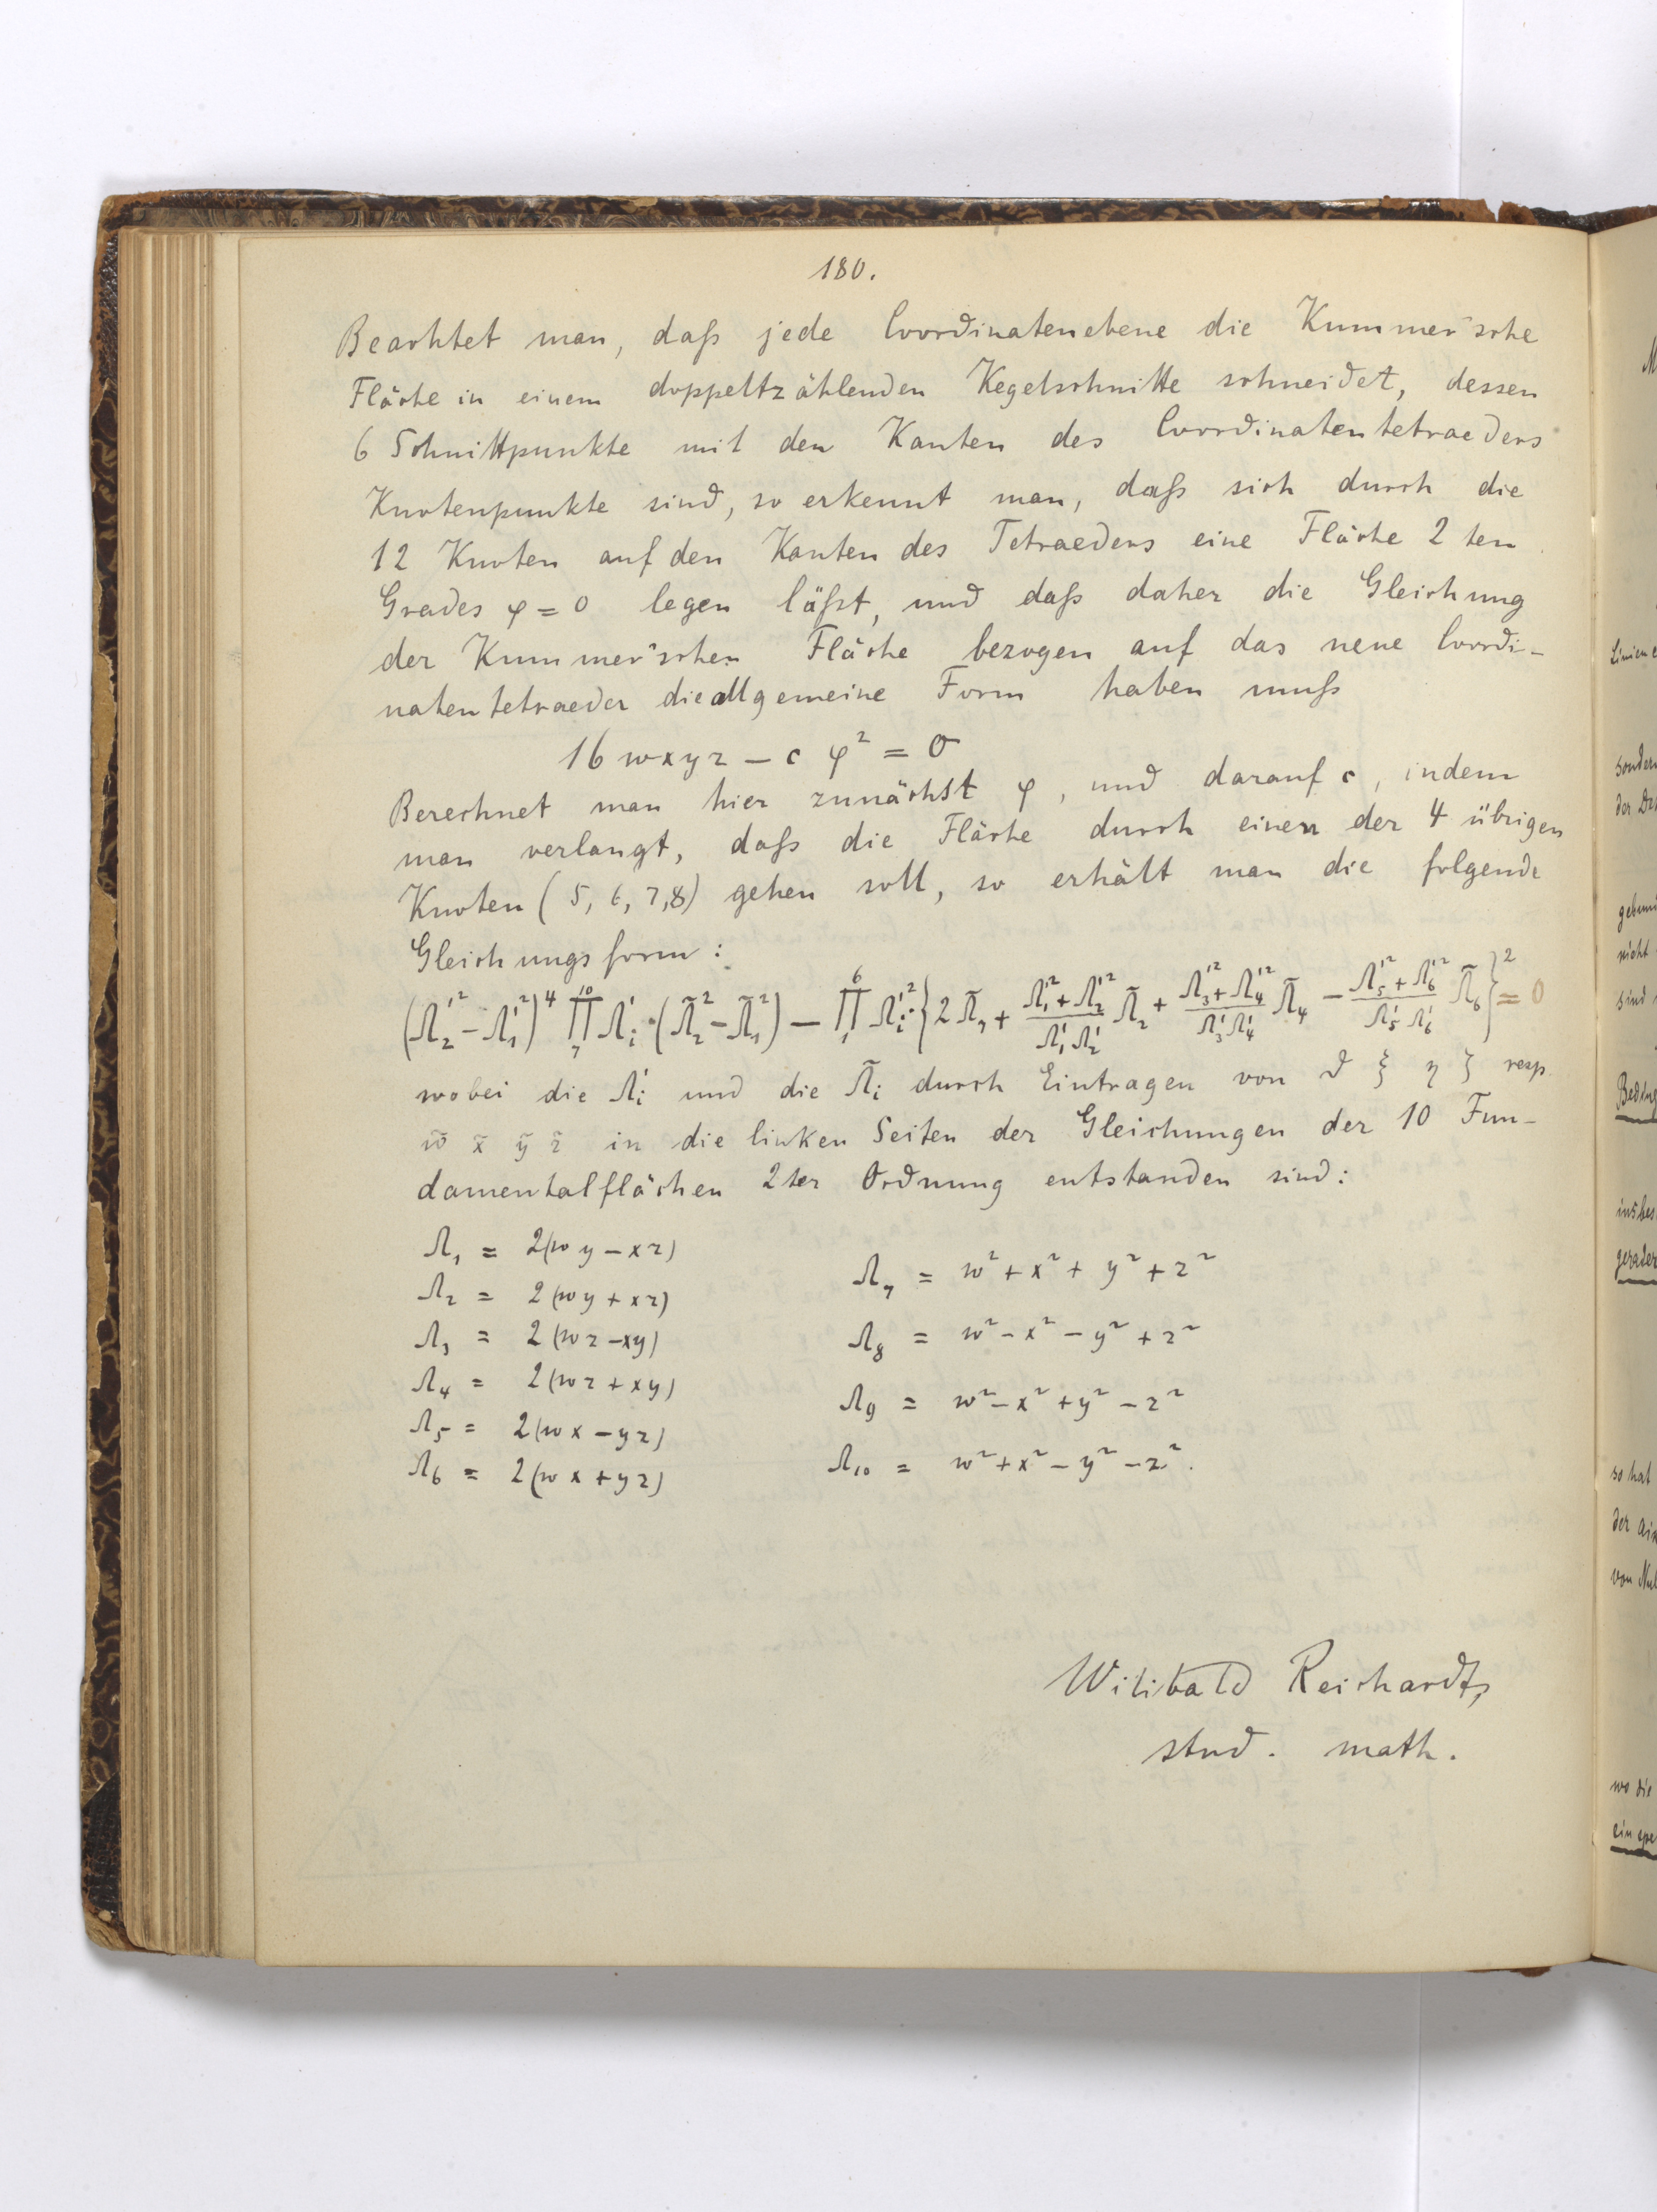 180.
Beachtet man, daß jede Coordinatenebene die Kummer'sche
Fläche in einem doppeltzählenden Kegelschnitte schneidet, dessen
6 Schnittpunkte mit den Kanten des Coordinatentetraeders
Knotenpunkte sind, so erkennt man, daß sich durch die
12 Knoten auf den Kanten des Tetraeders eine Fläche 2 ten
Grades φ = 0 legen läßt, und daß daher die Gleichung
der Kummer'schen Fläche bezogen auf das neue Coordi-
natentetraeder die allgemeine Form haben muß
16 wxyz − c φ² = 0
Berechnet man hier zunächst φ, und darauf c, indem
man verlangt, daß die Fläche durch einen der 4 übrigen
Knoten (5, 6, 7, 8) gehen soll, so erhält man die folgende
Gleichungsform:
(Λ₂'² − Λ₁'²)⁴ ∏₇¹⁰ Λᵢ' · (Λ̃₂² − Λ̃₁²) − ∏₁⁶ Λᵢ'² · {2 Λ̃₇ + (Λ₁'² + Λ₂'²)/(Λ₁' Λ₂') Λ̃₂ + (Λ₃'² + Λ₄'²)/(Λ₃' Λ₄') Λ̃₄ − (Λ₅'² + Λ₆'²)/(Λ₅' Λ₆') Λ̃₆}² = 0
wobei die Λᵢ' und die Λ̃ᵢ durch Eintragen von ϑ ξ η ζ resp.
w̃ x̃ ỹ z̃ in die linken Seiten der Gleichungen der 10 Fun-
damentalflächen 2ter Ordnung entstanden sind:
Λ₁ = 2(wy − xz)
Λ₂ = 2(wy + xz)
Λ₃ = 2(wz − xy)
Λ₄ = 2(wz + xy)
Λ₅ = 2(wx − yz)
Λ₆ = 2(wx + yz)
Λ₇ = w² + x² + y² + z²
Λ₈ = w² − x² − y² + z²
Λ₉ = w² − x² + y² − z²
Λ₁₀ = w² + x² − y² − z².
Wilibald Reichardt,
stud. math.
sondern
so hat
wo die